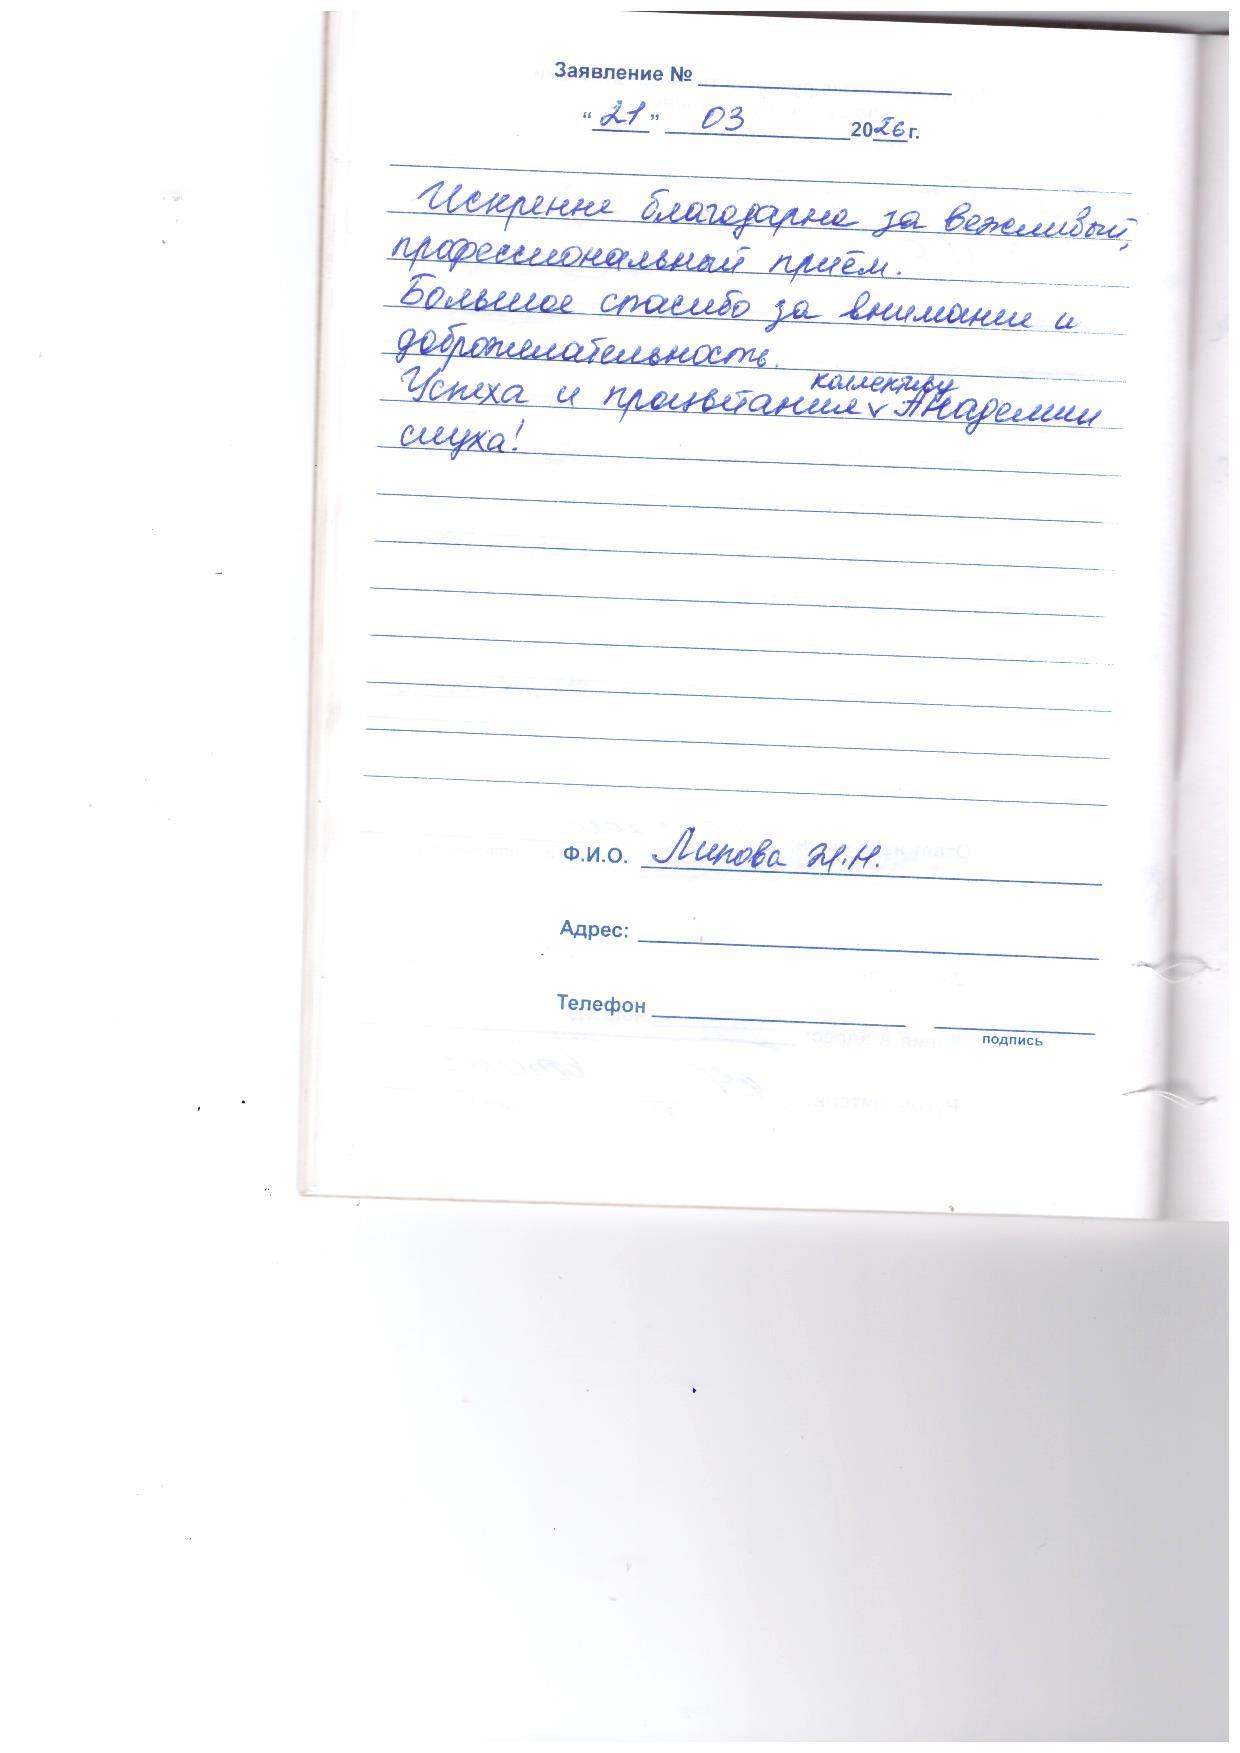 Заявление №
“21” 03 2026 г.
Искренне благодарна за вежливый,
профессиональный приём.
Большое спасибо за внимание и
доброжелательность.
Успеха и процветания коллективу Академии
слуха!
Ф.И.О. Липова И.Н.
Адрес:
Телефон
подпись